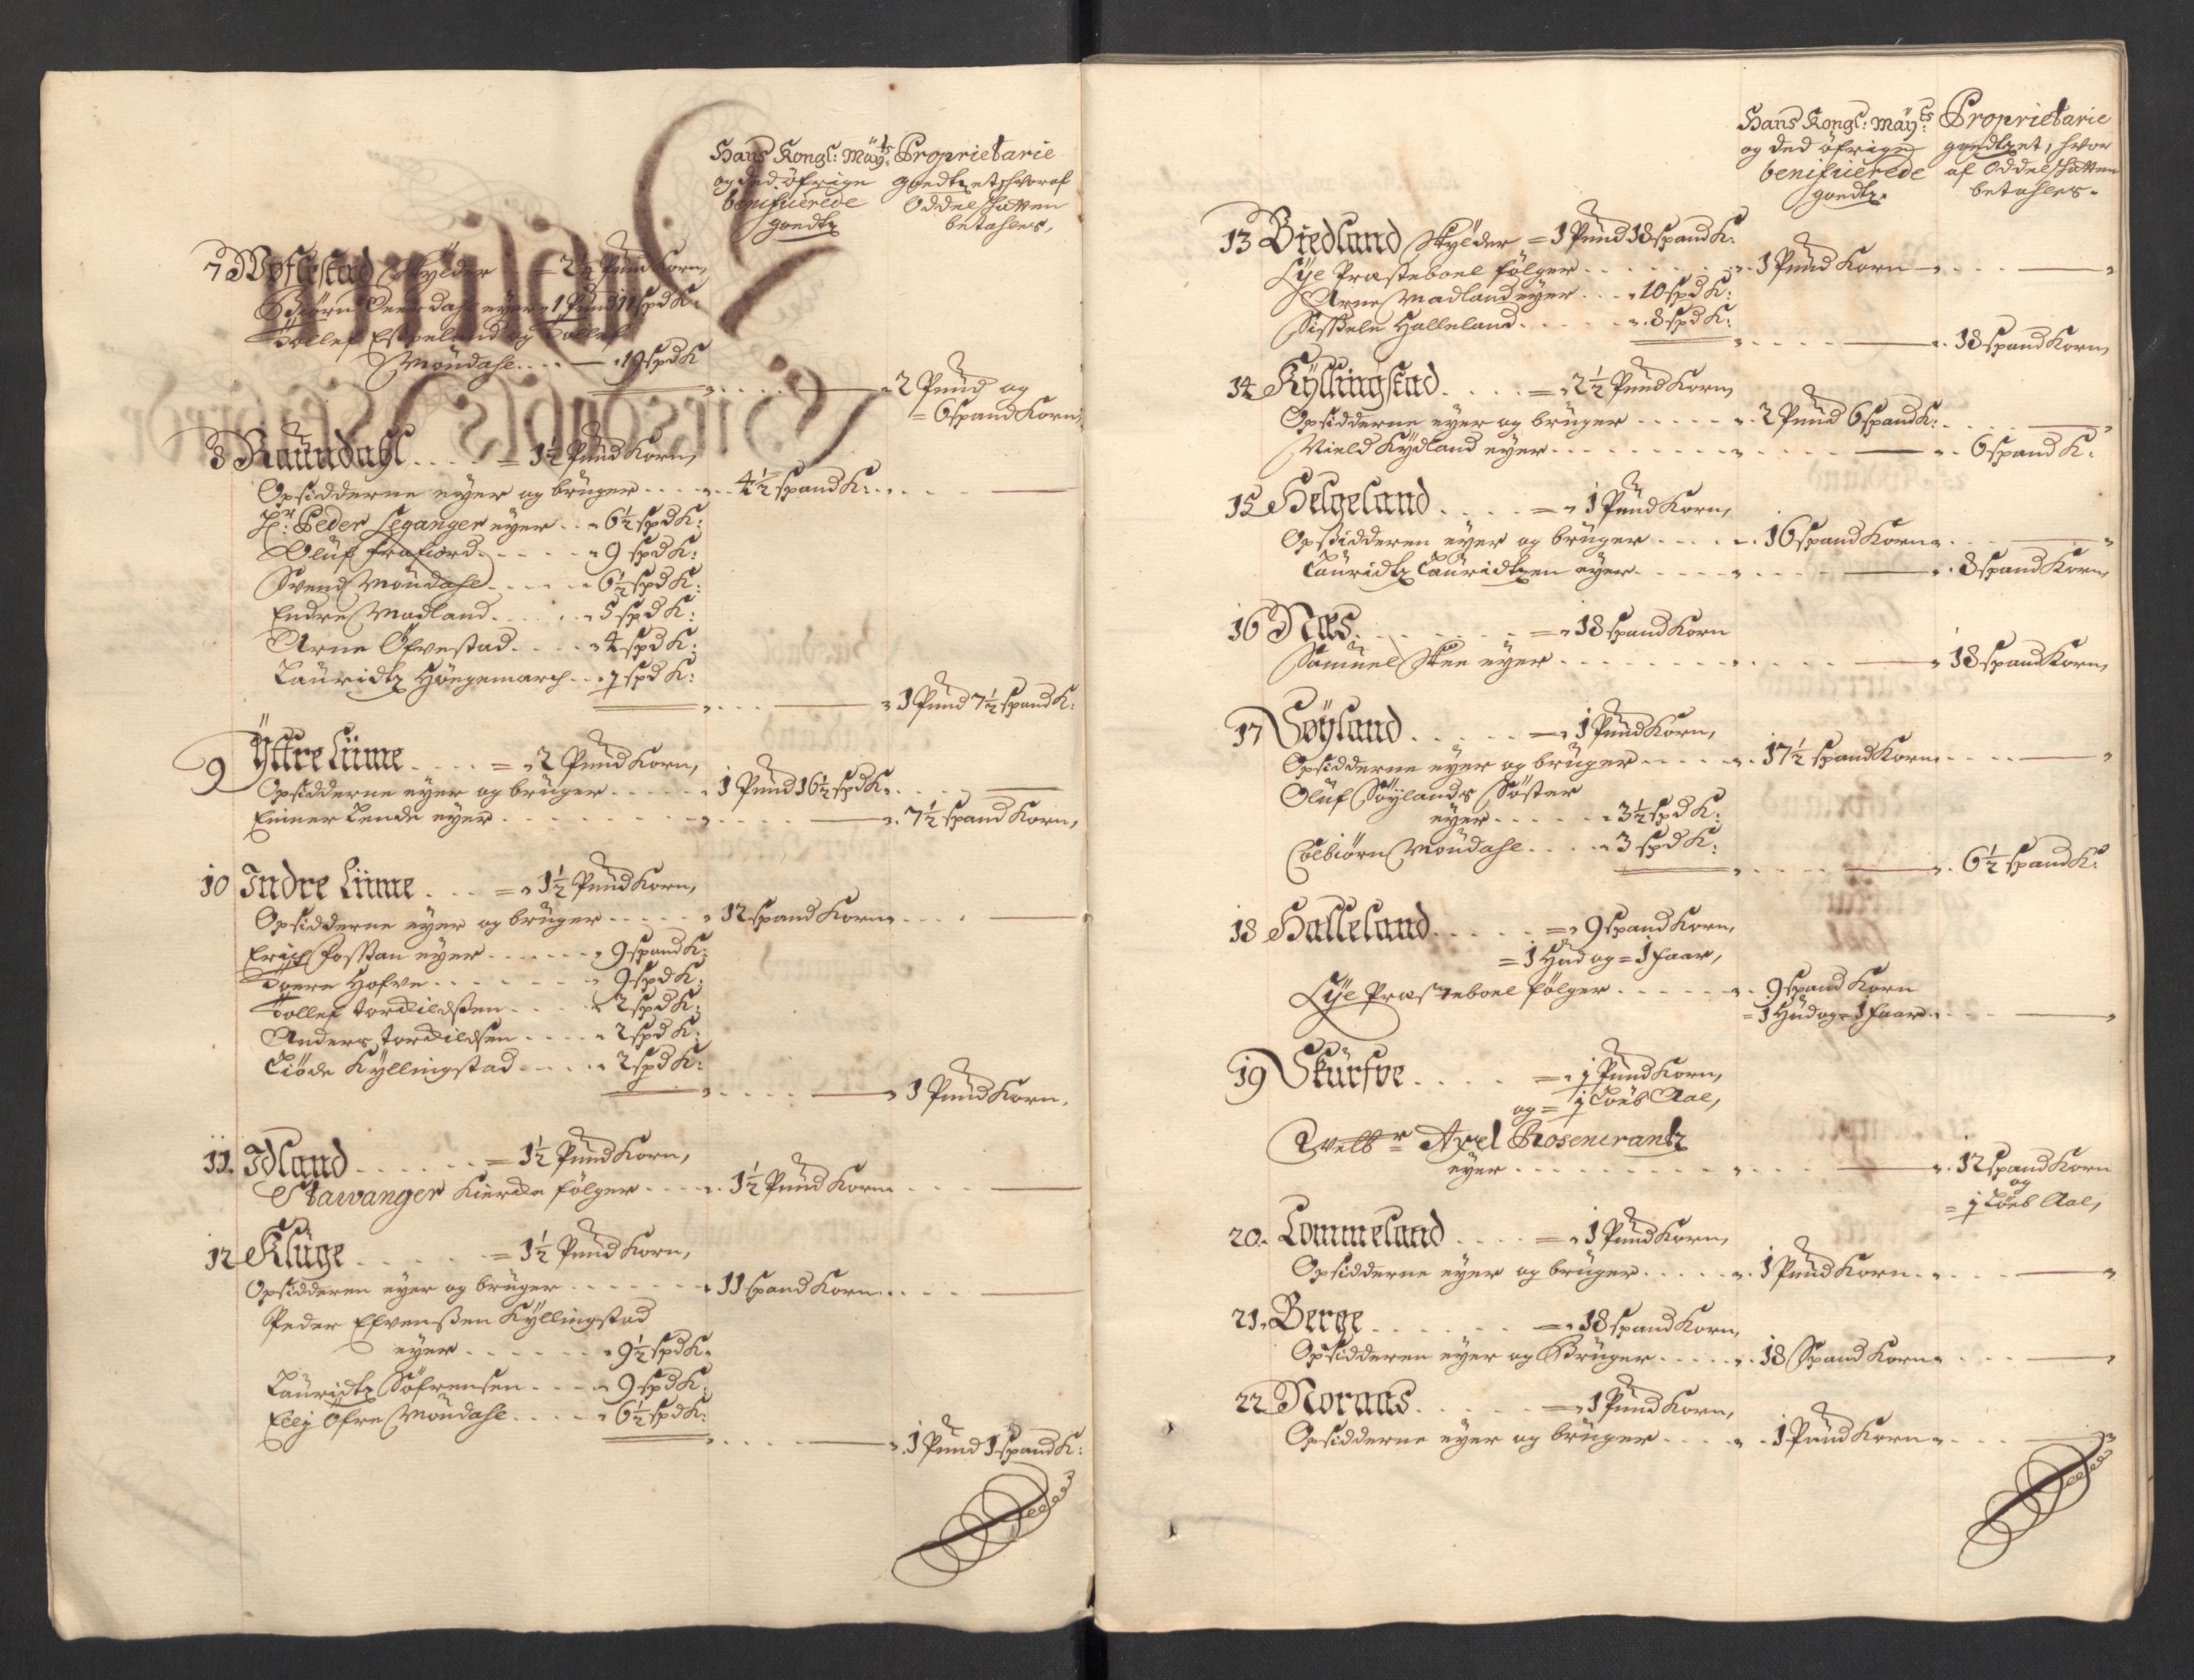 Hans Kongl: Mayts
og ded öfrige
benificerede
goedtz
Proprietarie
goedtzet, hvoraf
Oddelskatten
betahles,
7 Vøflestad Skylder = 2½ Pund Korn,
Biörn Oeerdahl eyer 1 Pund 11 spd K:
Tollef Espeland og Tollef
Möndahl .... 19 spd K
2 Pund og
= 6 spand Korn,
8 Raundahl .... = 1½ Pund Korn,
Opsidderne eyer og brüger .... 4½ spand K:
Hr: Peder Leganger eyer .. 6½ spd K:
Olüf Frafiord .... 9 spd K:
Svend Möndahl .... 6½ spd K:
Endre Madland .... 5 spd K:
Arne Ofvestad .... 4 spd K:
Lauridtz Höegemarch .. 1 spd K:
1 Pund 7½ spand K:
9 Yttre Lüme .... = 2 Pund Korn,
Opsidderne eyer og brüger .... 1 Pund 16½ spd K:
Einner Lende eyer .... 7½ spand Korn,
10 Indre Lüme ... = 1½ Pund Korn,
Opsidderne eyer og brüger .... 12 spand Korn
Erich Fossan eyer .... 9 spand K:
Toere Hofve .... 9 spd K:
Tollef Torkildsen .... 2 spd K:
Anders Torkildsen .... 2 spd K:
Tiöde Kyllingstad .... 2 spd K:
1 Pund Korn,
11. Idland .... = 1½ Pund Korn,
Stawanger Kierke fölger .... 1½ Pund Korn
12 Klüge .... = 1½ Pund Korn,
Opsidderen eyer og brüger .... 11 spand Korn
Peder Elvensen Kyllingstad
eyer .... 9½ spd K.
Lauridtz Söfrensen .... 9 spd K:
Elly Öfre Möndahl .... 6½ spd K:
1 Pund 1 spand K:
Hans Kongl: Mayts:
og ded öfrige
benificerede
goedtz
Proprietarie
goedtzet, hvor
af Oddelskatten
betahles
13 Biedland Skylder = 1 Pund 18 spand K:
Lye Præsteboel fölger .... 1 Pund Korn
Arne Madland eyer ... 10 spd K:
Sissele Halleland .... 8 spd K:
18 spand Korn,
14 Kyllingstad .... = 2½ Pund Korn,
Opsidderne eyer og brüger .... 2 Pund 6 spand K:
Nield Kydland eyer .... 6 spand K:
15 Helgeland .... = 1 Pund Korn,
Opsidderen eyer og brüger .... 16 spand Korn
Lauridtz Lauridtzen eyer .... 8 spand Korn,
16 Næs .... = 18 spand Korn
Samuel Skee eyer .... 18 spand Korn,
17 Søyland .... = 1 Pund Korn,
Opsidderne eyer og brüger .... 17½ spand Korn
Olüf Söylands Söster
eyer .... 3½ spd K:
Colbiörn Möndahl .... 3 spd K:
6½ spand K:
18 Halleland .... = 9 spand Korn,
= 1 Hud og = 1 faar,
Lye Præsteboel fölger .... 9 spand Korn
= 1 Hud og = 1 faar
19 Skürfve .... = 1 Pund Korn,
og = 1 Löeb Aal,
Axel Rosencrantz
eyer .... 12 spand Korn
og
= 1 Löeb Aal,
20. Lommeland .... = 1 Pund Korn,
Opsidderne eyer og brüger .... 1 Pund Korn
21. Berge .... = 18 spand Korn,
Opsidderen eyer og Brüger .... 18 Spand Korn
22 Noraas .... = 1 Pund Korn,
Opsidderne eyer og brüger .... 1 Pund Korn